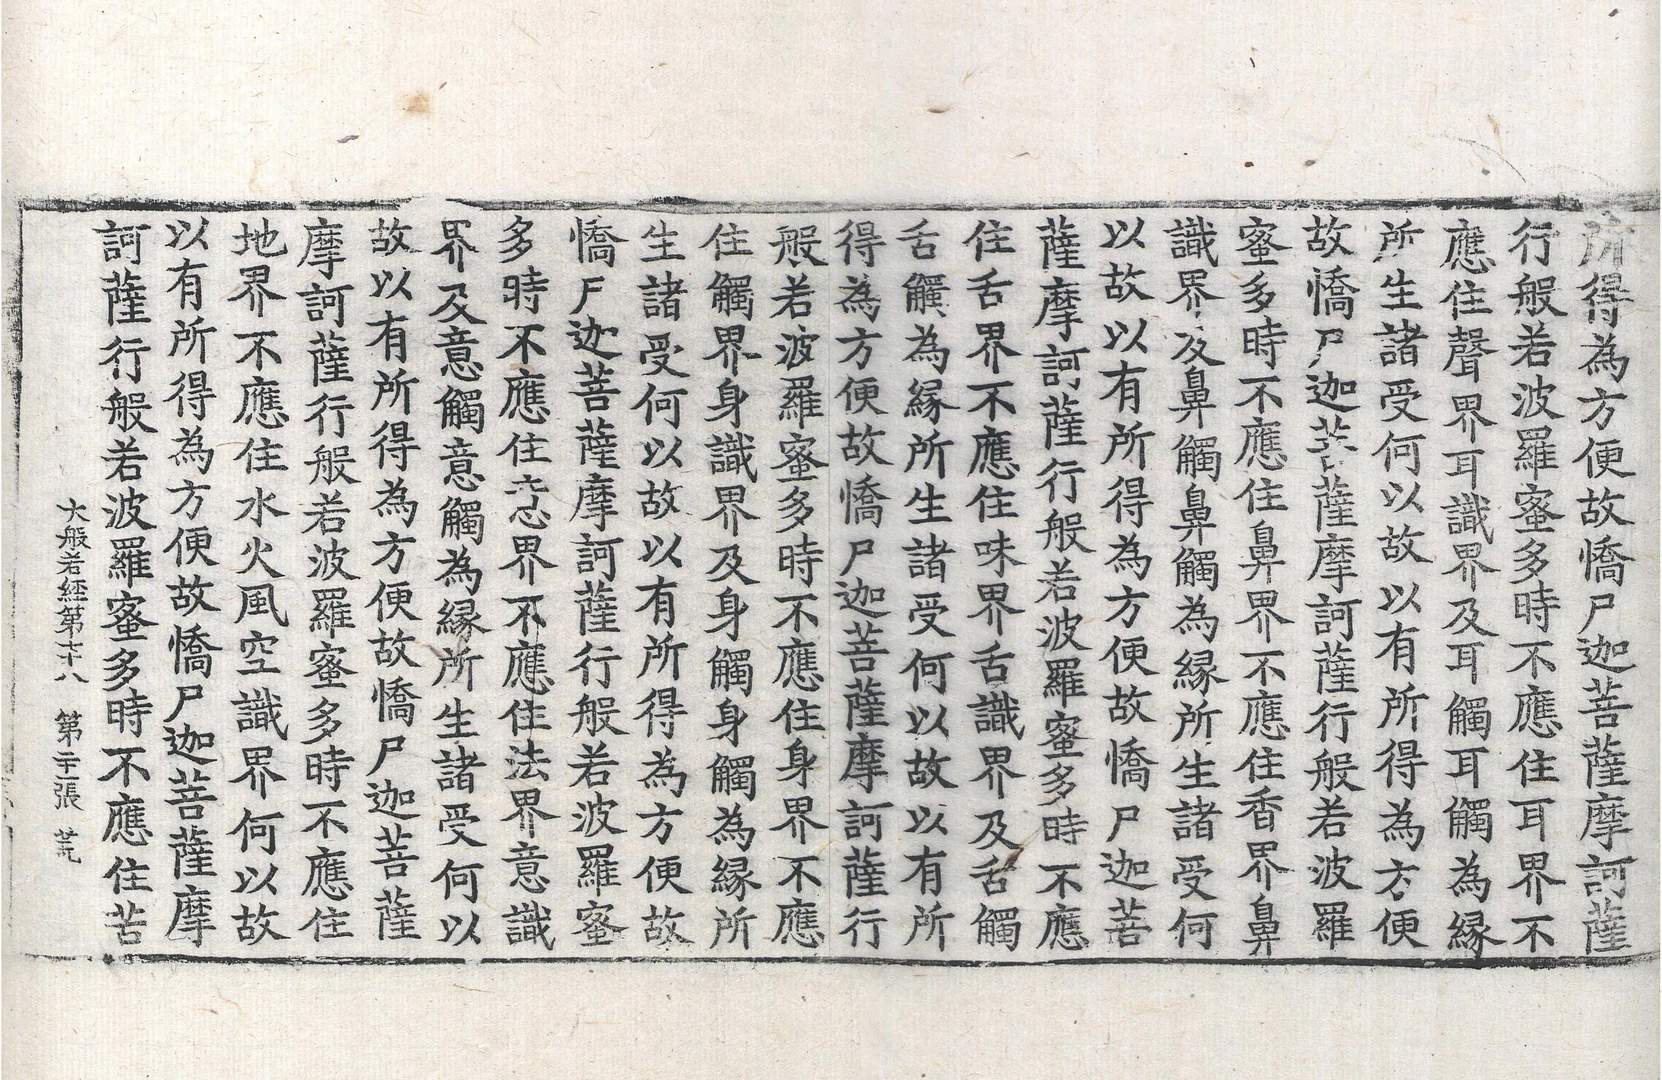 所得為方便故憍尸迦菩薩摩訶薩
行般若波羅蜜多時不應住耳界不
應住聲界耳識界及耳觸耳觸為縁
所生諸受何以故以有所得為方便
故憍尸迦菩薩摩訶薩行般若波羅
蜜多時不應住鼻界不應住香界鼻
識界及鼻觸鼻觸為縁所生諸受何
以故以有所得為方便故憍尸迦菩
薩摩訶薩行般若波羅蜜多時不應
住舌界不應住味界舌識界及舌觸
舌觸為縁所生諸受何以故以有所
得為方便故憍尸迦菩薩摩訶薩行
般若波羅蜜多時不應住身界不應
住觸界身識界及身觸身觸為縁所
生諸受何以故以有所得為方便故
憍尸迦菩薩摩訶薩行般若波羅蜜
多時不應住意界不應住法界意識
界及意觸意觸為縁所生諸受何以
故以有所得為方便故憍尸迦菩薩
摩訶薩行般若波羅蜜多時不應住
地界不應住水火風空識界何以故
以有所得為方便故憍尸迦菩薩摩
訶薩行般若波羅蜜多時不應住苦
大般若經第七十八 第二十一張 荒